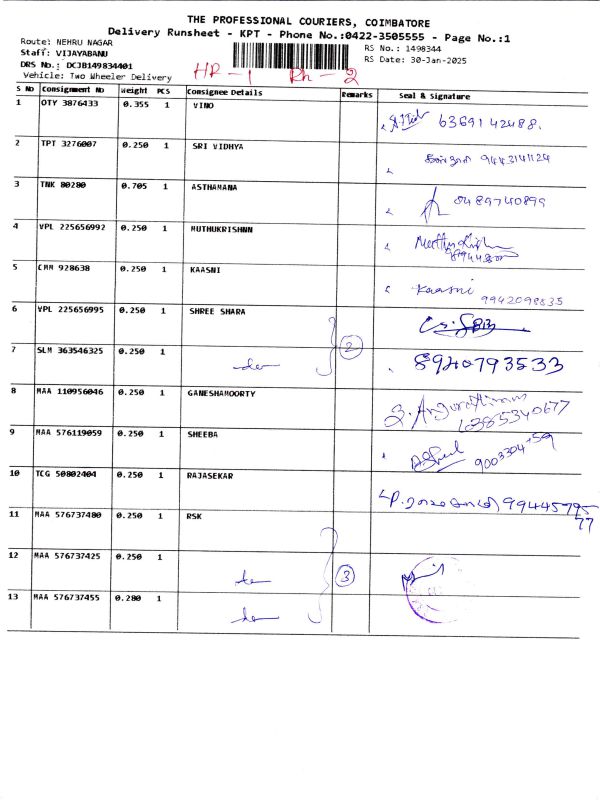 THE PROFESSIONAL COURIERS, COIMBATORE
Delivery Runsheet - KPT - Phone No.:0422-3505555 - Page No.:1
Route: NEHRU NAGAR
RS No.: 1498344
Staff: VIJAYABANU
RS Date: 30-Jan-2025
DRS No.: DCJB149834401
HR-1 Rh-2
Vehicle: Two Wheeler Delivery
S No Consignment No Weight PCS Consignee Details Remarks Seal & Signature
1 OTY 3876433 0.355 1 VINO 6369142488.
2 TPT 3276007 0.250 1 SRI VIDHYA 9443141124
3 TNK 80280 0.705 1 ASTHAMANA 0489740899
4 VPL 225656992 0.250 1 MUTHUKRISHNN
5 CMM 928638 0.250 1 KAASNI Kaasni 9942098835
6 VPL 225656995 0.250 1 SHREE SHARA
2
7 SLM 363546325 0.250 1 8940793533
8 MAA 110956046 0.250 1 GANESHAMOORTY 6385340677
9 MAA 576119059 0.250 1 SHEEBA
10 TCG 50802404 0.250 1 RAJASEKAR 9944579577
11 MAA 576737480 0.250 1 RSK
12 MAA 576737425 0.250 1 3
13 MAA 576737455 0.280 1